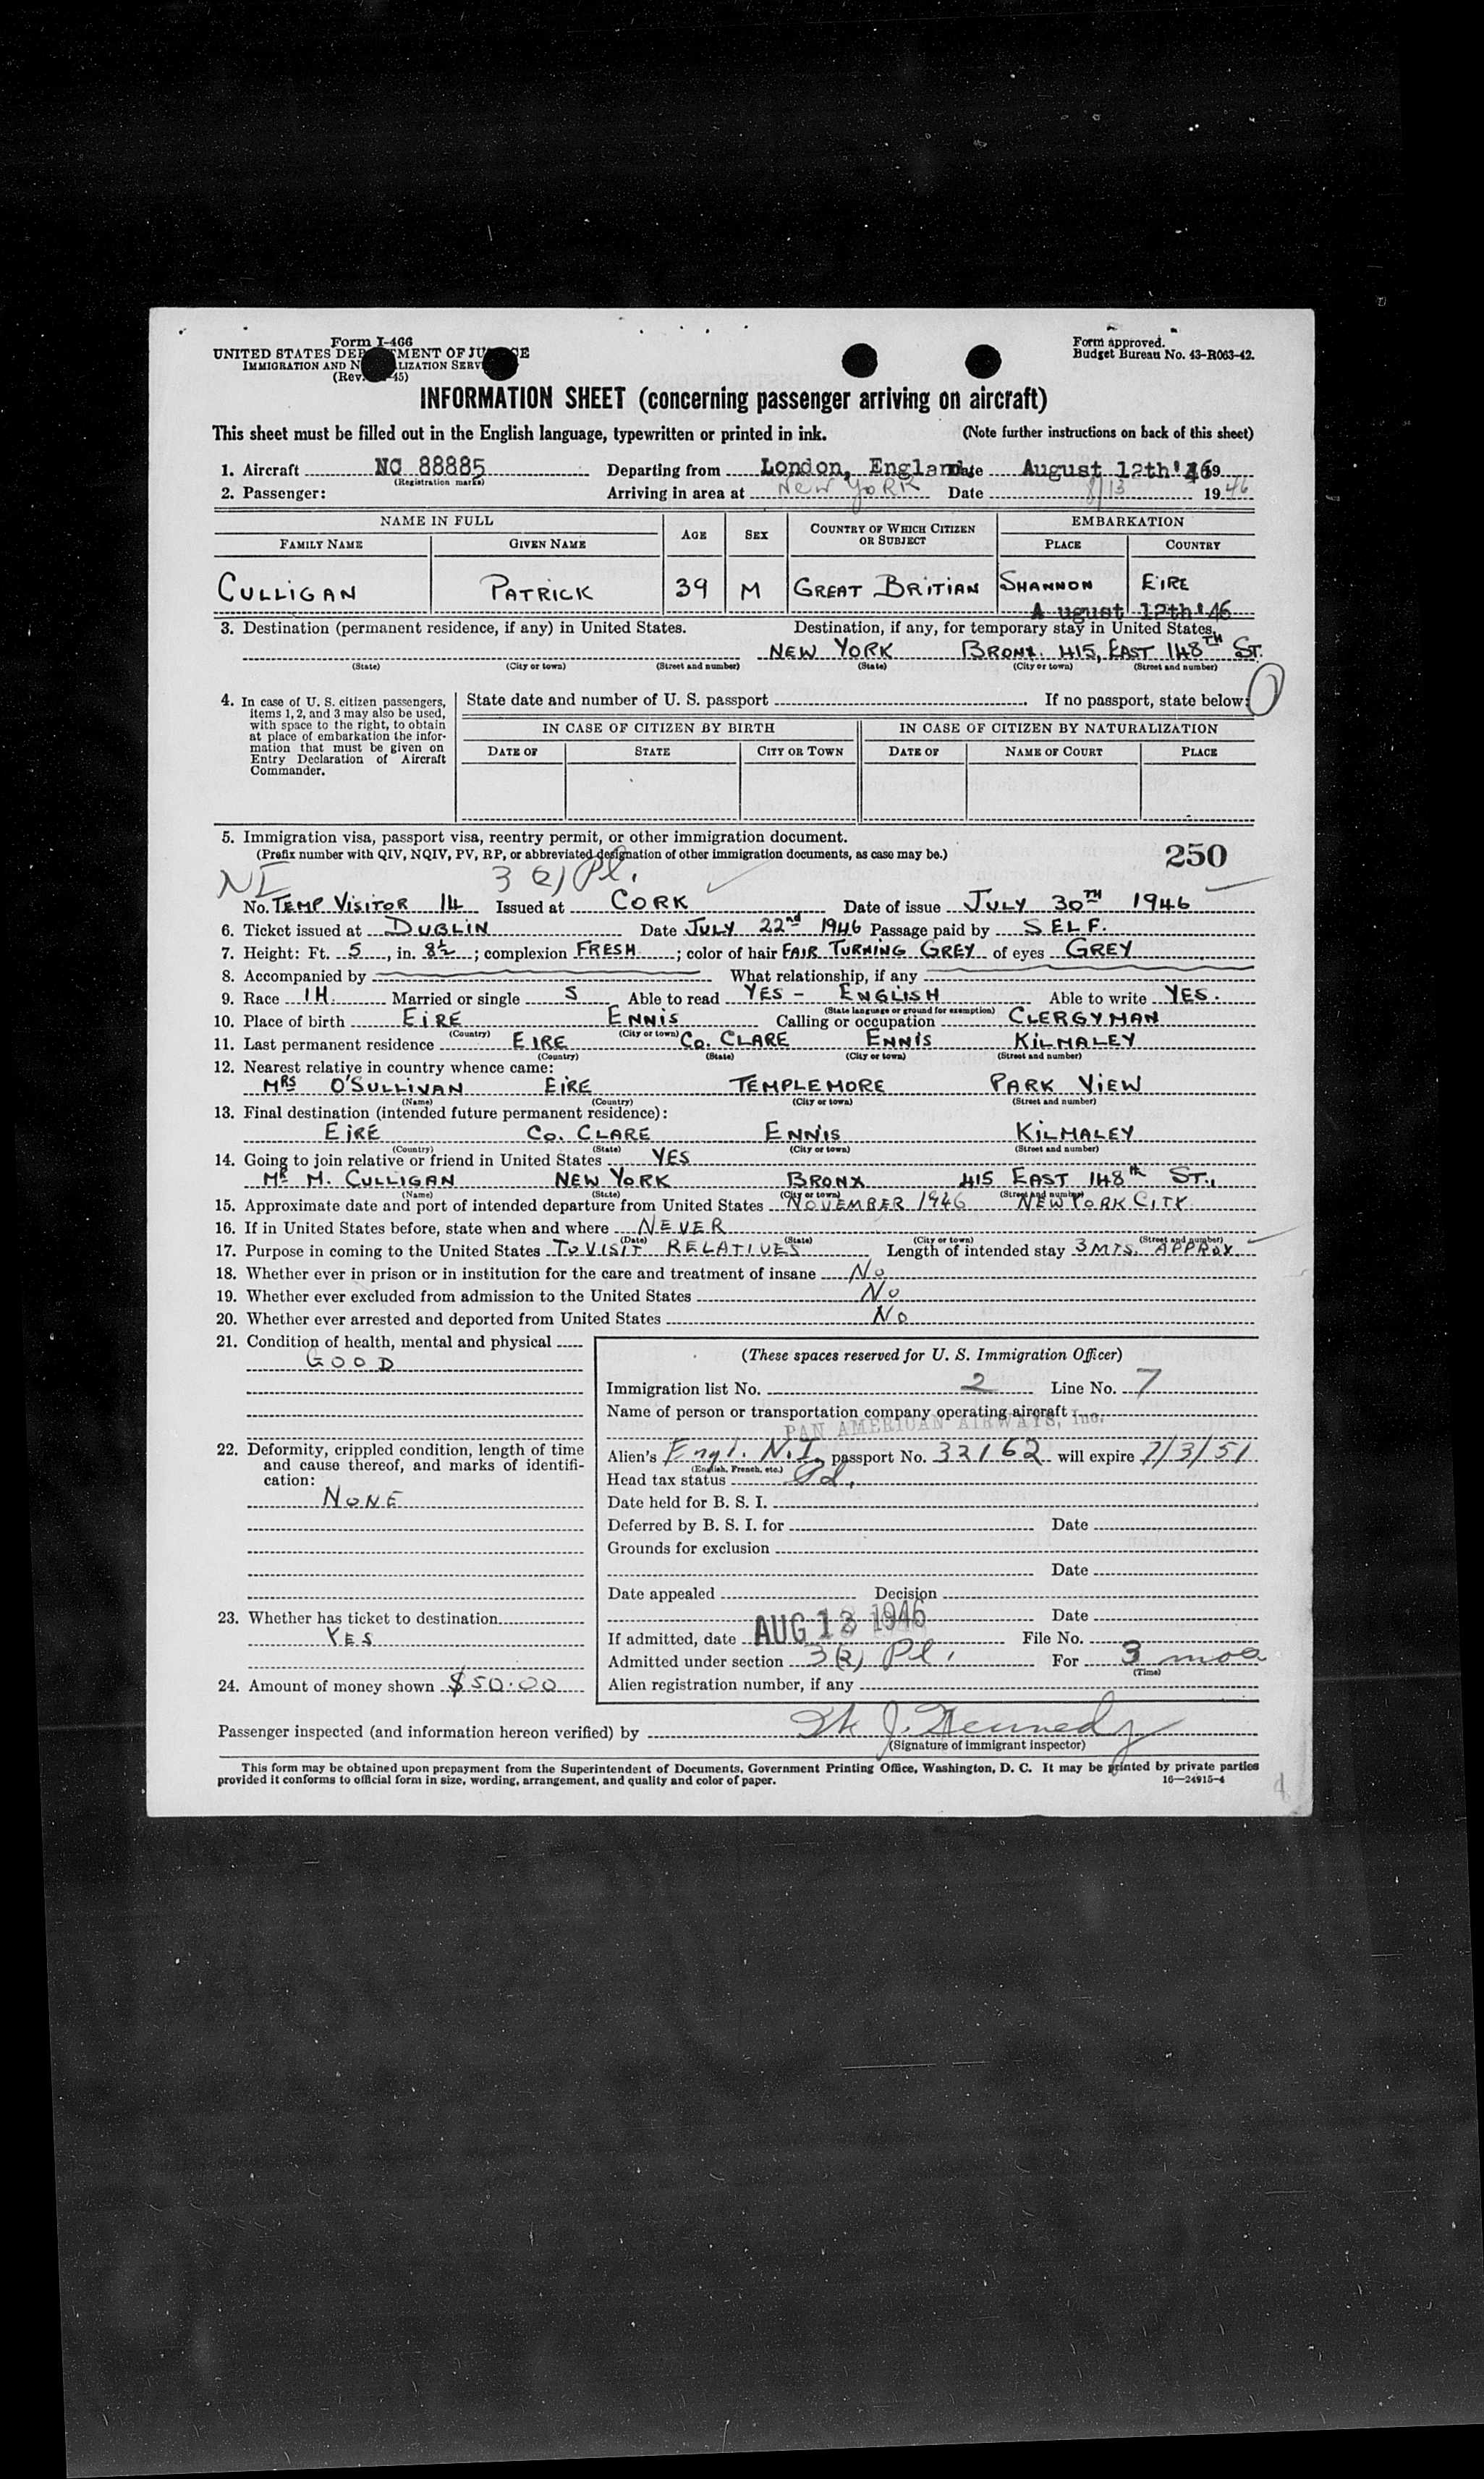 Form I-466
UNITED STATES DEP MENT OF JU E
IMMIGRATION AND N LIZATION SERV
(Rev. 45)
Form approved.
Budget Bureau No. 43-R063-42.
INFORMATION SHEET (concerning passenger arriving on aircraft)
This sheet must be filled out in the English language, typewritten or printed in ink. (Note further instructions on back of this sheet)
1. Aircraft NC 88885 Departing from London, England Date August 12th '46 19
(Registration marks)
2. Passenger: Arriving in area at New York Date 8/13 1946
NAME IN FULL AGE SEX COUNTRY OF WHICH CITIZEN OR SUBJECT EMBARKATION
FAMILY NAME GIVEN NAME PLACE COUNTRY
CULLIGAN PATRICK 39 M GREAT BRITIAN SHANNON EIRE
August 12th '46
3. Destination (permanent residence, if any) in United States. Destination, if any, for temporary stay in United States.
NEW YORK BRONX. 415, EAST 148TH ST.
(State) (City or town) (Street and number) (State) (City or town) (Street and number)
4. In case of U. S. citizen passengers, items 1, 2, and 3 may also be used, with space to the right, to obtain at place of embarkation the information that must be given on Entry Declaration of Aircraft Commander.
State date and number of U. S. passport If no passport, state below:
IN CASE OF CITIZEN BY BIRTH IN CASE OF CITIZEN BY NATURALIZATION
DATE OF STATE CITY OR TOWN DATE OF NAME OF COURT PLACE
5. Immigration visa, passport visa, reentry permit, or other immigration document.
(Prefix number with QIV, NQIV, PV, RP, or abbreviated designation of other immigration documents, as case may be.) 250
NI 3(2) Pl.
No. TEMP VISITOR 14 Issued at CORK Date of issue JULY 30TH 1946
6. Ticket issued at DUBLIN Date JULY 22nd 1946 Passage paid by SELF.
7. Height: Ft. 5, in. 8½; complexion FRESH; color of hair FAIR TURNING GREY of eyes GREY
8. Accompanied by What relationship, if any
9. Race IH. Married or single S Able to read YES - ENGLISH Able to write YES.
(State language or ground for exemption)
10. Place of birth EIRE ENNIS Calling or occupation CLERGYMAN
(Country) (City or town)
11. Last permanent residence EIRE CO. CLARE ENNIS KILMALEY
(Country) (State) (City or town) (Street and number)
12. Nearest relative in country whence came:
MRS O'SULLIVAN EIRE TEMPLEMORE PARK VIEW
(Name) (Country) (City or town) (Street and number)
13. Final destination (intended future permanent residence):
EIRE CO. CLARE ENNIS KILMALEY
(Country) (State) (City or town) (Street and number)
14. Going to join relative or friend in United States YES
MR M. CULLIGAN NEW YORK BRONX 415 EAST 148th ST.,
(Name) (State) (City or town) (Street and number)
15. Approximate date and port of intended departure from United States NOVEMBER 1946 NEW YORK CITY.
16. If in United States before, state when and where NEVER
(Date) (State) (City or town) (Street and number)
17. Purpose in coming to the United States TO VISIT RELATIVES Length of intended stay 3 MTS. APPROX.
18. Whether ever in prison or in institution for the care and treatment of insane No
19. Whether ever excluded from admission to the United States No
20. Whether ever arrested and deported from United States No
21. Condition of health, mental and physical
GOOD
22. Deformity, crippled condition, length of time and cause thereof, and marks of identification:
NONE
23. Whether has ticket to destination
YES
24. Amount of money shown $50.00
(These spaces reserved for U. S. Immigration Officer)
Immigration list No. 2 Line No. 7
Name of person or transportation company operating aircraft
PAN AMERICAN AIRWAYS, Inc.
Alien's Engl. N.I. passport No. 32162 will expire 7/3/51
(English, French, etc.)
Head tax status Pd.
Date held for B. S. I.
Deferred by B. S. I. for Date
Grounds for exclusion
Date
Date appealed Decision
Date
If admitted, date AUG 13 1946 File No.
Admitted under section 3(2) Pl. For 3 mos
(Time)
Alien registration number, if any
Passenger inspected (and information hereon verified) by J. Kennedy
(Signature of immigrant inspector)
This form may be obtained upon prepayment from the Superintendent of Documents, Government Printing Office, Washington, D. C. It may be printed by private parties
provided it conforms to official form in size, wording, arrangement, and quality and color of paper. 16—24915-4